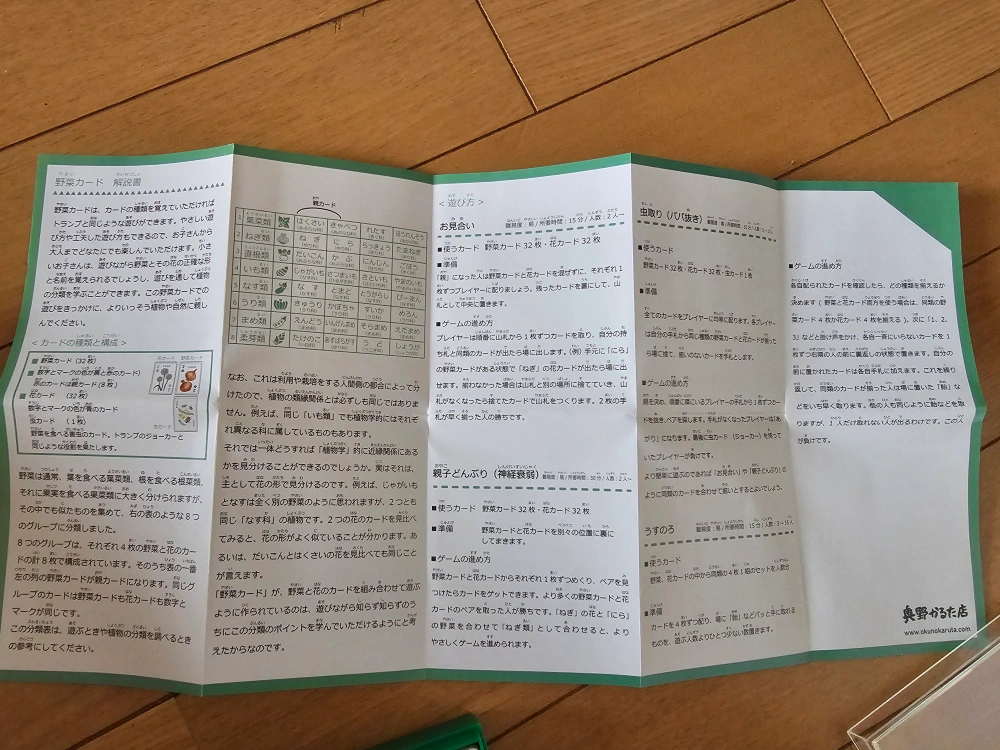 野菜カード 解説書
野菜カードは、カードの種類を覚えていただければ
トランプと同じような遊びができます。やさしい遊
び方や工夫した遊び方もできるので、お子さんから
大人までどなたにでも楽しんでいただけます。小さ
いお子さんは、遊びながら野菜とその花の正確な形
と名前を覚えられるでしょうし、遊びを通して植物
の分類を学ぶことができます。この野菜カードでの
遊びをきっかけに、よりいっそう植物や自然に親し
んでください。
<カードの種類と構成>
■ 野菜カード (32枚)
■ 数字とマークの色が黒と赤のカード)
赤のカードは親カード(8枚)
■ 花カード (32枚)
数字とマークの色が青のカード
虫カード (1枚)
野菜を食べる害虫のカード。トランプのジョーカーと
同じような役割を果たします。
花カード 野菜カード
野菜は通常、葉を食べる葉菜類、根を食べる根菜類、
それに果実を食べる果菜類に大きく分けられますが、
その中でも似たものを集めて、右の表のような8つ
のグループに分類しました。
8つのグループは、それぞれ4枚の野菜と花のカー
ドの計8枚で構成されています。そのうち表の一番
左の列の野菜カードが親カードになります。同じグ
ループのカードは野菜カードも花カードも数字と
マークが同じです。
この分類表は、遊ぶときや植物の分類を調べるとき
の参考にしてください。
親カード
1 葉菜類 はくさい きゃべつ れたす ほうれんそう
2 ねぎ類 ねぎ にら らっきょう たまねぎ
3 直根類 だいこん かぶ にんじん ごぼう
4 いも類 じゃがいも さつまいも さといも やまのいも
5 なす類 なす とまと とうがらし ぴーまん
6 うり類 きゅうり かぼちゃ すいか めろん
7 まめ類 えんどう いんげんまめ そらまめ えだまめ
8 柔芽類 たけのこ あすぱらがす うど しょうが
なお、これは利用や栽培をする人間側の都合によって分
けたので、植物の類縁関係とは必ずしも同じではありま
せん。例えば、同じ「いも類」でも植物学的にはそれぞ
れ異なる科に属しているものもあります。
それでは一体どうすれば「植物学」的に近縁関係にある
かを見分けることができるのでしょうか。実はそれは、
主として花の形で見分けるのです。例えば、じゃがいも
となすは全く別の野菜のように思われますが、2つとも
同じ「なす科」の植物です。2つの花のカードを見比べ
てみると、花の形がよく似ていることが分かります。あ
るいは、だいこんとはくさいの花を見比べても同じこと
が言えます。
「野菜カード」が、野菜と花のカードを組み合わせて遊ぶ
ように作られているのは、遊びながら知らず知らずのう
ちにこの分類のポイントを学んでいただけるようにと考
えたからなのです。
<遊び方>
お見合い 難易度:易/所要時間:15分/人数:2人〜
■使うカード 野菜カード32枚・花カード32枚
■準備
「親」になった人は野菜カードと花カードを混ぜずに、それぞれ1
枚ずつプレイヤーに配りましょう。残ったカードを裏にして、山
札として中央に置きます。
■ゲームの進め方
プレイヤーは順番に山札から1枚ずつカードを取り、自分の持
ち札と同類のカードが出たら場に出します。(例)手元に「にら」
の野菜カードがある状態で「ねぎ」の花カードが出たら場に出
せます。揃わなかった場合は山札と別の場所に捨てていき、山
札がなくなったら捨てたカードで山札をつくります。2枚の手
札が早く揃った人の勝ちです。
親子どんぶり(神経衰弱) 難易度:易/所要時間:30分/人数:2人〜
■使うカード 野菜カード32枚・花カード32枚
■準備 野菜カードと花カードを別々の位置に裏に
してまきます。
■ゲームの進め方
野菜カードと花カードからそれぞれ1枚ずつめくり、ペアを見
つけたらカードをゲットできます。より多くの野菜カードと花
カードのペアを取った人が勝ちです。「ねぎ」の花と「にら」
の野菜を合わせて「ねぎ類」として合わせると、より
やさしくゲームを進められます。
虫取り(ババ抜き) 難易度:易/所要時間:15分/人数:3〜8人
■使うカード
野菜カード32枚・花カード32枚・虫カード1枚
■準備
全てのカードをプレイヤーに均等に配ります。各プレイヤー
は自分の手札から同じ種類の野菜カードと花カードが揃った
ら場に捨て、揃いのないカードを手札とします。
■ゲームの進め方
親を決め、順番に隣にいるプレイヤーの手札から1枚ずつカー
ドを抜き、ペアを探します。手札がなくなったプレイヤーは「あ
がり」になります。最後に虫カード(ジョーカー)を持って
いたプレイヤーが負けです。
より簡単に遊ぶのであれば「お見合い」や「親子どんぶり」の
ように同類のカードを合わせて揃いとするとよいでしょう。
うすのろ 難易度:易/所要時間:15分/人数:3〜15人
■使うカード
野菜、花カードの中から同類の4枚1組のセットを人数分
■準備
カードを4枚ずつ配り、場に「飴」などパッと手に取れる
ものを、遊ぶ人数よりひとつ少ない数置きます。
■ゲームの進め方
各自配られたカードを確認したら、どの種類を揃えるか
決めます(野菜と花カード両方を使う場合は、同類の野
菜カード4枚か花カード4枚を揃える)。次に「1、2、
3」などと掛け声をかけ、各自一斉にいらないカードを1
枚ずつ右隣の人の前に裏返しの状態で置きます。自分の
前に置かれたカードは各自手札に加えます。これを繰り
返して、同類のカードが揃った人は場に置いた「飴」な
どをいち早く取ります。他の人も同じように飴などを取
りますが、1人だけ取れない人が出るわけです。この人
が負けです。
奥野かるた店
www.okunokaruta.com